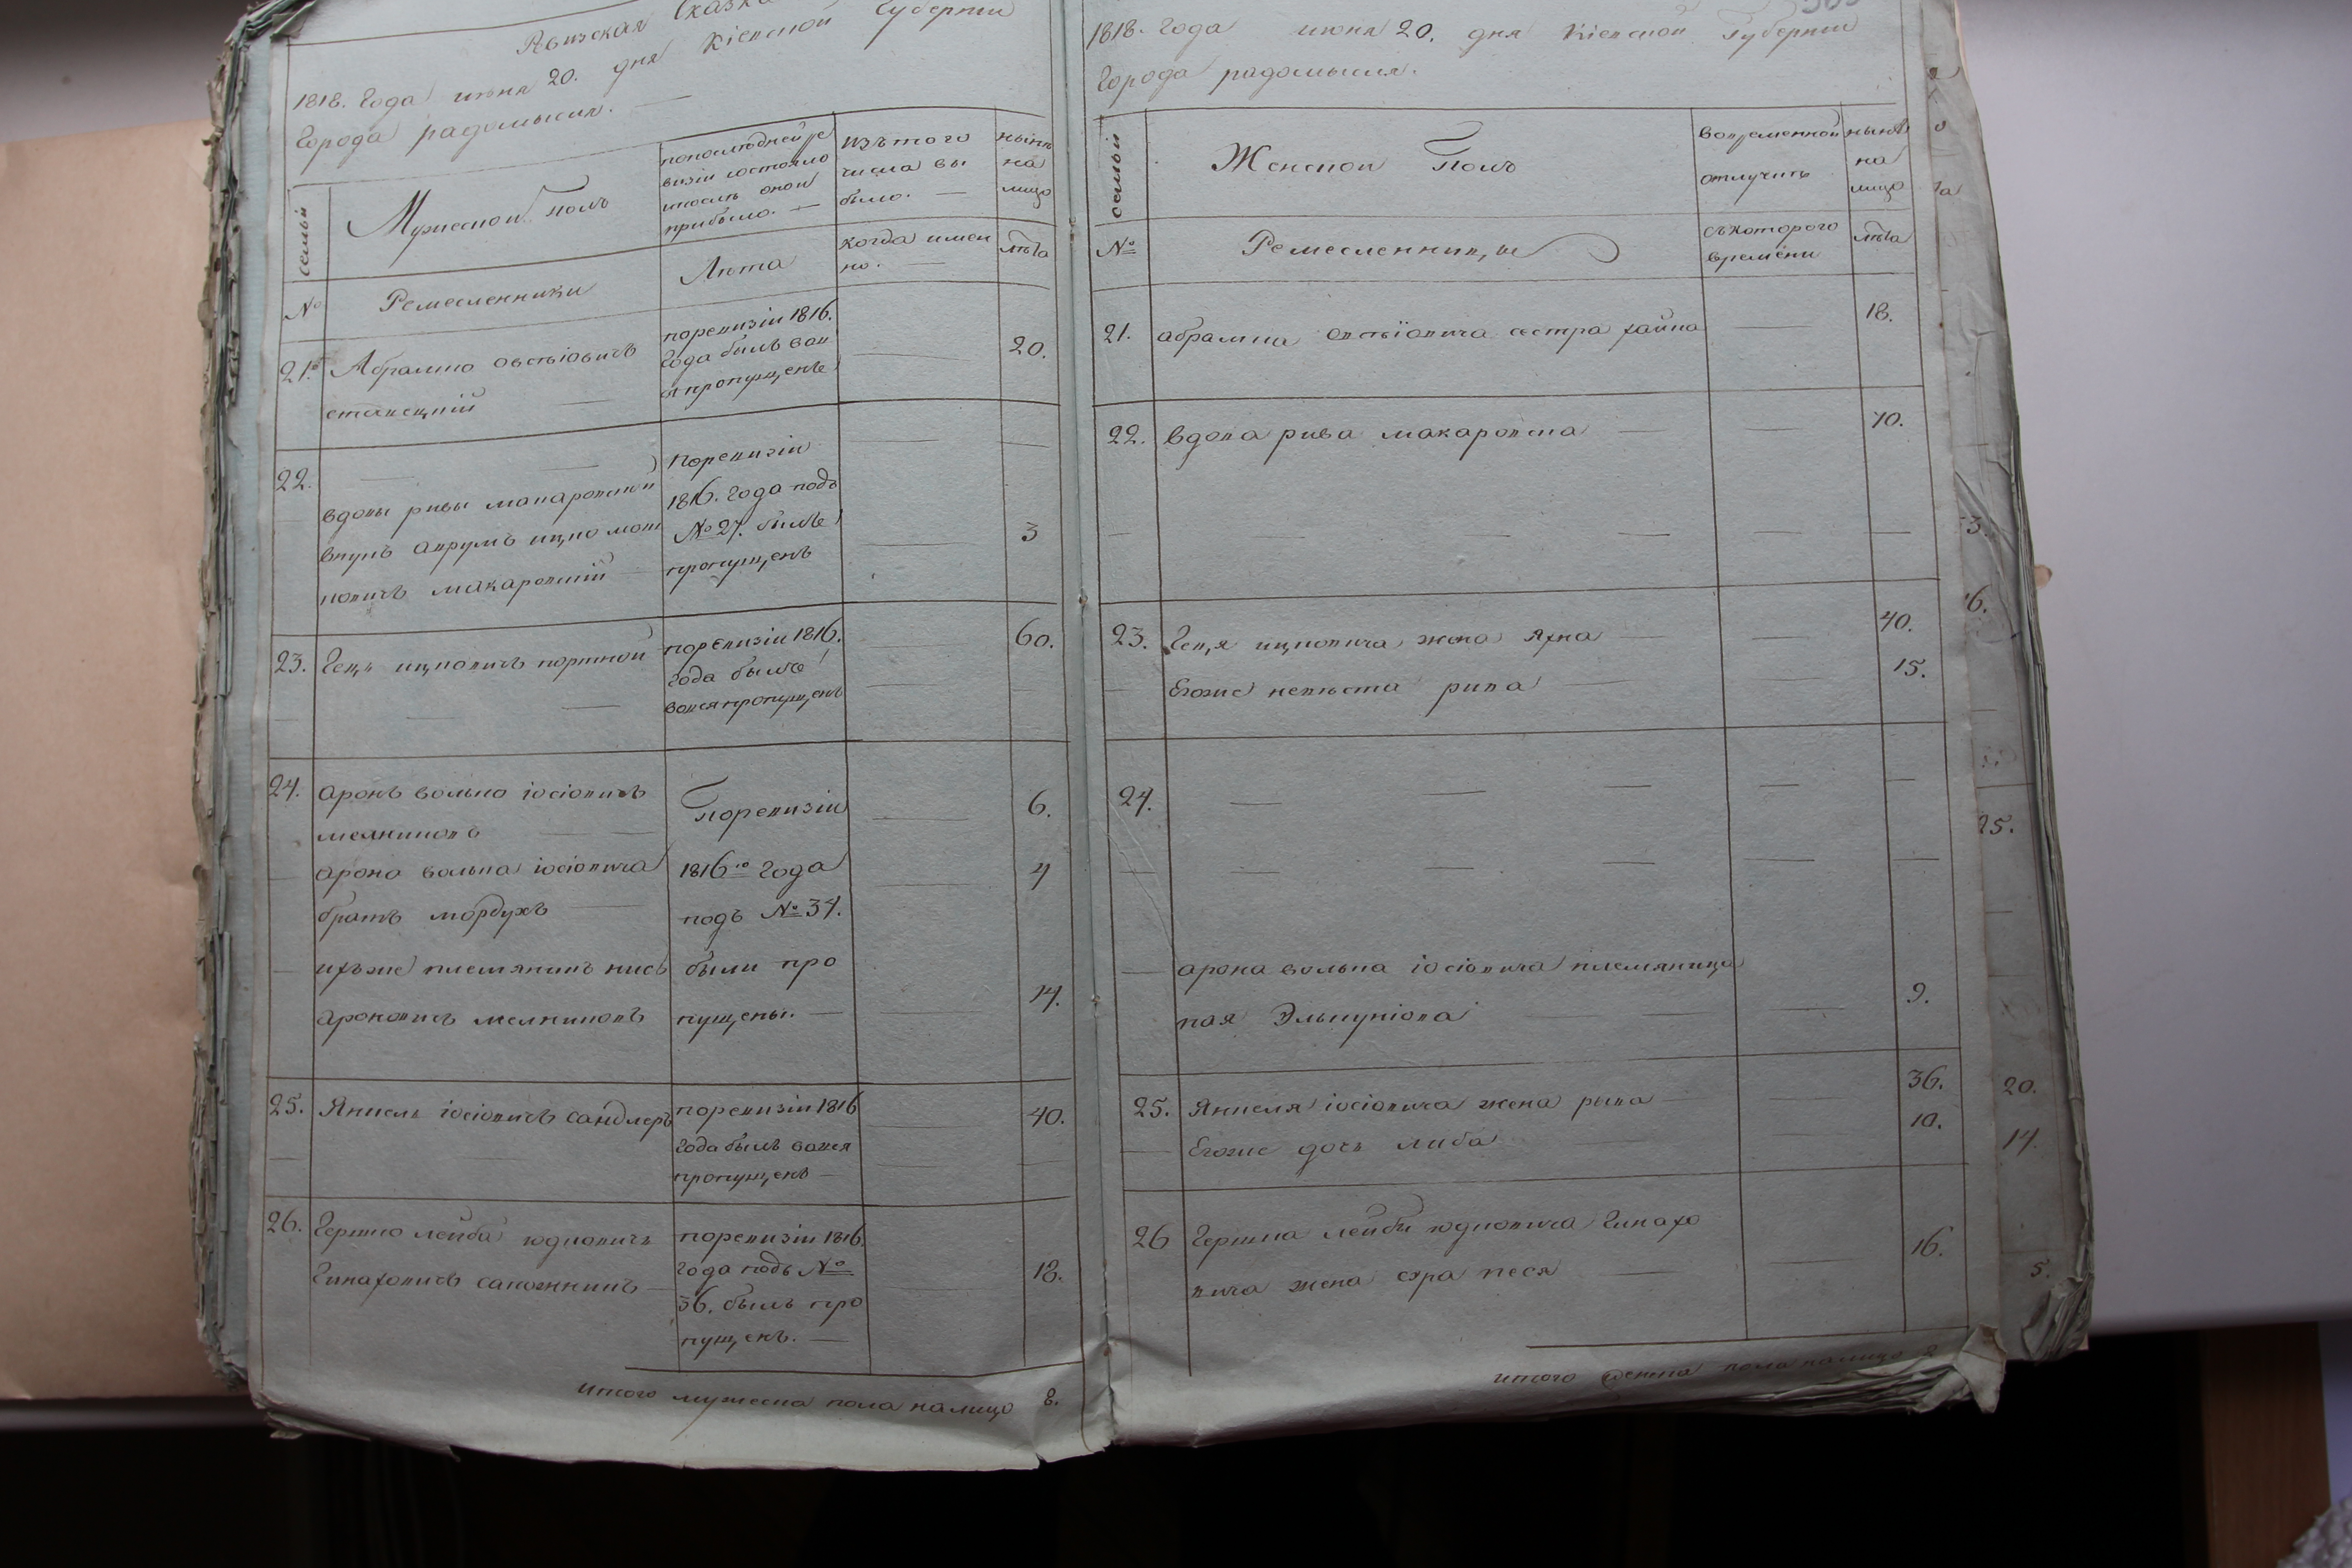 Ревизская Сказка
1818. Года июня 20. дня Кіевской Губерніи
Города радомысля. —
семьи
Мужескои полъ
попослѣдней ре
визіи состояло
и послѣ онои
прибыло. —
изъ того
числа вы
было. —
нынѣ
на
лицо
№
Ремесленники
Лѣта
когда имен
но. —
лѣта
21.
Абрамко овсѣіовичъ
ставецкій —
поревизіи 1816.
Года былъ вов
ся пропущенъ
20.
22.
вдовы ривы макаровской
внукъ аврумъ ицко мош
ковичъ макаровскій
Поревизіи
1816. Года подъ
№ 27. былъ
пропущенъ
3
23.
Геца ицковичъ портной
поревизіи 1816.
Года былъ
вовся пропущенъ
60.
24.
аронъ волько іосіовичъ
мелниковъ
арона волька іосіовича
братъ мордухъ —
ихъже племяникъ кисъ
ароновичъ мелниковъ
Поревизіи
1816го Года
подъ № 34.
были про
пущены. —
6.
4
14.
25.
Янкель іосіовичъ сандлеръ
поревизіи 1816
Года былъ вовся
пропущенъ —
40.
26.
Гершко лейба юдковичъ
Гинаховичъ сапожникъ —
поревизіи 1816.
Года подъ №
36. былъ про
пущенъ. —
18.
итого мужеска пола налицо 8.
1818. Года июня 20. дня Кіевской Губерніи
Города радомысля.
семьи
Женскои Полъ
вовременной
отлучкѣ
нынѣ
на
лицо
№
Ремесленники
съкоторого
времени
лѣта
21.
абрамка овсѣіовича сестра хайка
18.
22.
вдова рива макаровска —
70.
23.
Геця ицковича жена Яхна —
40.
Егоже невѣста рива
15.
24.
арона волька іосіовича племяница
пая Элькуніова
9.
25.
Янкеля іосіовича жена рыва —
36.
Егоже дочь либа
10.
26
Гершка лейби юдковича Гинахо
вича жена сура песя —
16.
итого женска пола налицо 8